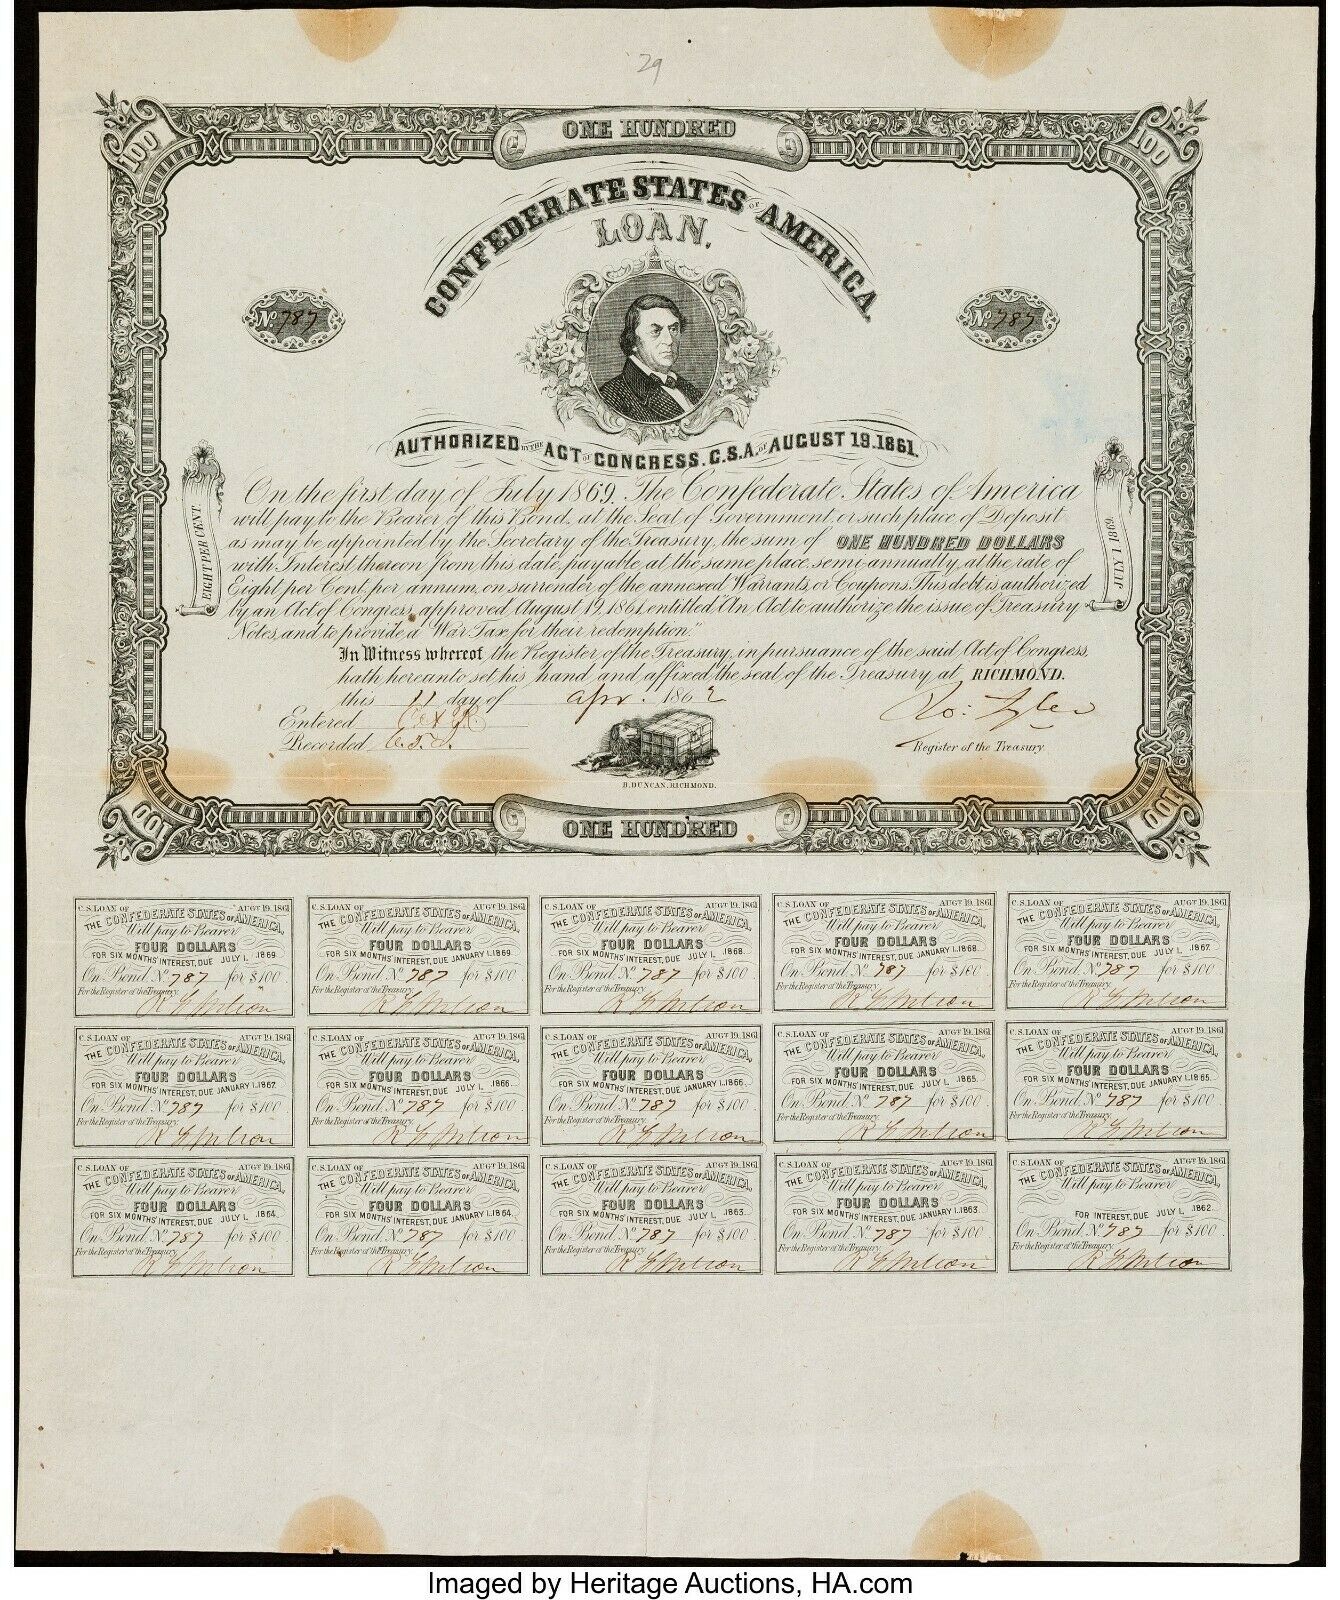 29
ONE HUNDRED
100 100
CONFEDERATE STATES OF AMERICA.
LOAN.
No. 787 No. 787
AUTHORIZED BY THE ACT OF CONGRESS. C.S.A. OF AUGUST 19. 1861.
EIGHT PER CENT.
JULY 1 1869.
On the first day of July 1869, The Confederate States of America
will pay to the Bearer of this Bond, at the Seat of Government, or such place of Deposit
as may be appointed by the Secretary of the Treasury, the sum of ONE HUNDRED DOLLARS
with Interest thereon from this date, payable, at the same place, semi-annually, at the rate of
Eight per Cent. per annum, on surrender of the annexed Warrants, or Coupons. This debt is authorized
by an Act of Congress, approved August 19, 1861, entitled "An Act to authorize the issue of Treasury
Notes, and to provide a War Tax for their redemption."
In Witness whereof, the Register of the Treasury, in pursuance of the said Act of Congress,
hath hereunto set his hand, and affixed the seal of the Treasury at RICHMOND.
this 11 day of Apr. 1862
Entered
Recorded
Ro: Tyler
Register of the Treasury
B. DUNCAN. RICHMOND.
100 100
ONE HUNDRED
C.S. LOAN OF AUGT 19. 1861
THE CONFEDERATE STATES OF AMERICA,
Will pay to Bearer
FOUR DOLLARS
FOR SIX MONTHS' INTEREST, DUE JULY 1. 1869.
On Bond No. 787 for $100
For the Register of the Treasury.
C.S. LOAN OF AUGT 19. 1861
THE CONFEDERATE STATES OF AMERICA,
Will pay to Bearer
FOUR DOLLARS
FOR SIX MONTHS' INTEREST, DUE JANUARY 1. 1869.
On Bond No. 787 for $100
For the Register of the Treasury.
C.S. LOAN OF AUGT 19. 1861
THE CONFEDERATE STATES OF AMERICA,
Will pay to Bearer
FOUR DOLLARS
FOR SIX MONTHS' INTEREST, DUE JULY 1. 1868.
On Bond No. 787 for $100
For the Register of the Treasury.
C.S. LOAN OF AUGT 19. 1861
THE CONFEDERATE STATES OF AMERICA,
Will pay to Bearer
FOUR DOLLARS
FOR SIX MONTHS' INTEREST, DUE JANUARY 1. 1868.
On Bond No. 787 for $100
For the Register of the Treasury.
C.S. LOAN OF AUGT 19. 1861
THE CONFEDERATE STATES OF AMERICA,
Will pay to Bearer
FOUR DOLLARS
FOR SIX MONTHS' INTEREST, DUE JULY 1. 1867.
On Bond No. 787 for $100
For the Register of the Treasury.
C.S. LOAN OF AUGT 19. 1861
THE CONFEDERATE STATES OF AMERICA,
Will pay to Bearer
FOUR DOLLARS
FOR SIX MONTHS' INTEREST, DUE JANUARY 1. 1867.
On Bond No. 787 for $100
For the Register of the Treasury.
C.S. LOAN OF AUGT 19. 1861
THE CONFEDERATE STATES OF AMERICA,
Will pay to Bearer
FOUR DOLLARS
FOR SIX MONTHS' INTEREST, DUE JULY 1. 1866.
On Bond No. 787 for $100
For the Register of the Treasury.
C.S. LOAN OF AUGT 19. 1861
THE CONFEDERATE STATES OF AMERICA,
Will pay to Bearer
FOUR DOLLARS
FOR SIX MONTHS' INTEREST, DUE JANUARY 1. 1866.
On Bond No. 787 for $100
For the Register of the Treasury.
C.S. LOAN OF AUGT 19. 1861
THE CONFEDERATE STATES OF AMERICA,
Will pay to Bearer
FOUR DOLLARS
FOR SIX MONTHS' INTEREST, DUE JULY 1. 1865.
On Bond No. 787 for $100
For the Register of the Treasury.
C.S. LOAN OF AUGT 19. 1861
THE CONFEDERATE STATES OF AMERICA,
Will pay to Bearer
FOUR DOLLARS
FOR SIX MONTHS' INTEREST, DUE JANUARY 1. 1865.
On Bond No. 787 for $100
For the Register of the Treasury.
C.S. LOAN OF AUGT 19. 1861
THE CONFEDERATE STATES OF AMERICA,
Will pay to Bearer
FOUR DOLLARS
FOR SIX MONTHS' INTEREST, DUE JULY 1. 1864.
On Bond No. 787 for $100
For the Register of the Treasury.
C.S. LOAN OF AUGT 19. 1861
THE CONFEDERATE STATES OF AMERICA,
Will pay to Bearer
FOUR DOLLARS
FOR SIX MONTHS' INTEREST, DUE JANUARY 1. 1864.
On Bond No. 787 for $100
For the Register of the Treasury.
C.S. LOAN OF AUGT 19. 1861
THE CONFEDERATE STATES OF AMERICA,
Will pay to Bearer
FOUR DOLLARS
FOR SIX MONTHS' INTEREST, DUE JULY 1. 1863.
On Bond No. 787 for $100
For the Register of the Treasury.
C.S. LOAN OF AUGT 19. 1861
THE CONFEDERATE STATES OF AMERICA,
Will pay to Bearer
FOUR DOLLARS
FOR SIX MONTHS' INTEREST, DUE JANUARY 1. 1863.
On Bond No. 787 for $100
For the Register of the Treasury.
C.S. LOAN OF AUGT 19. 1861
THE CONFEDERATE STATES OF AMERICA,
Will pay to Bearer
FOR INTEREST, DUE JULY 1. 1862.
On Bond No. 787 for $100
For the Register of the Treasury.
Imaged by Heritage Auctions, HA.com